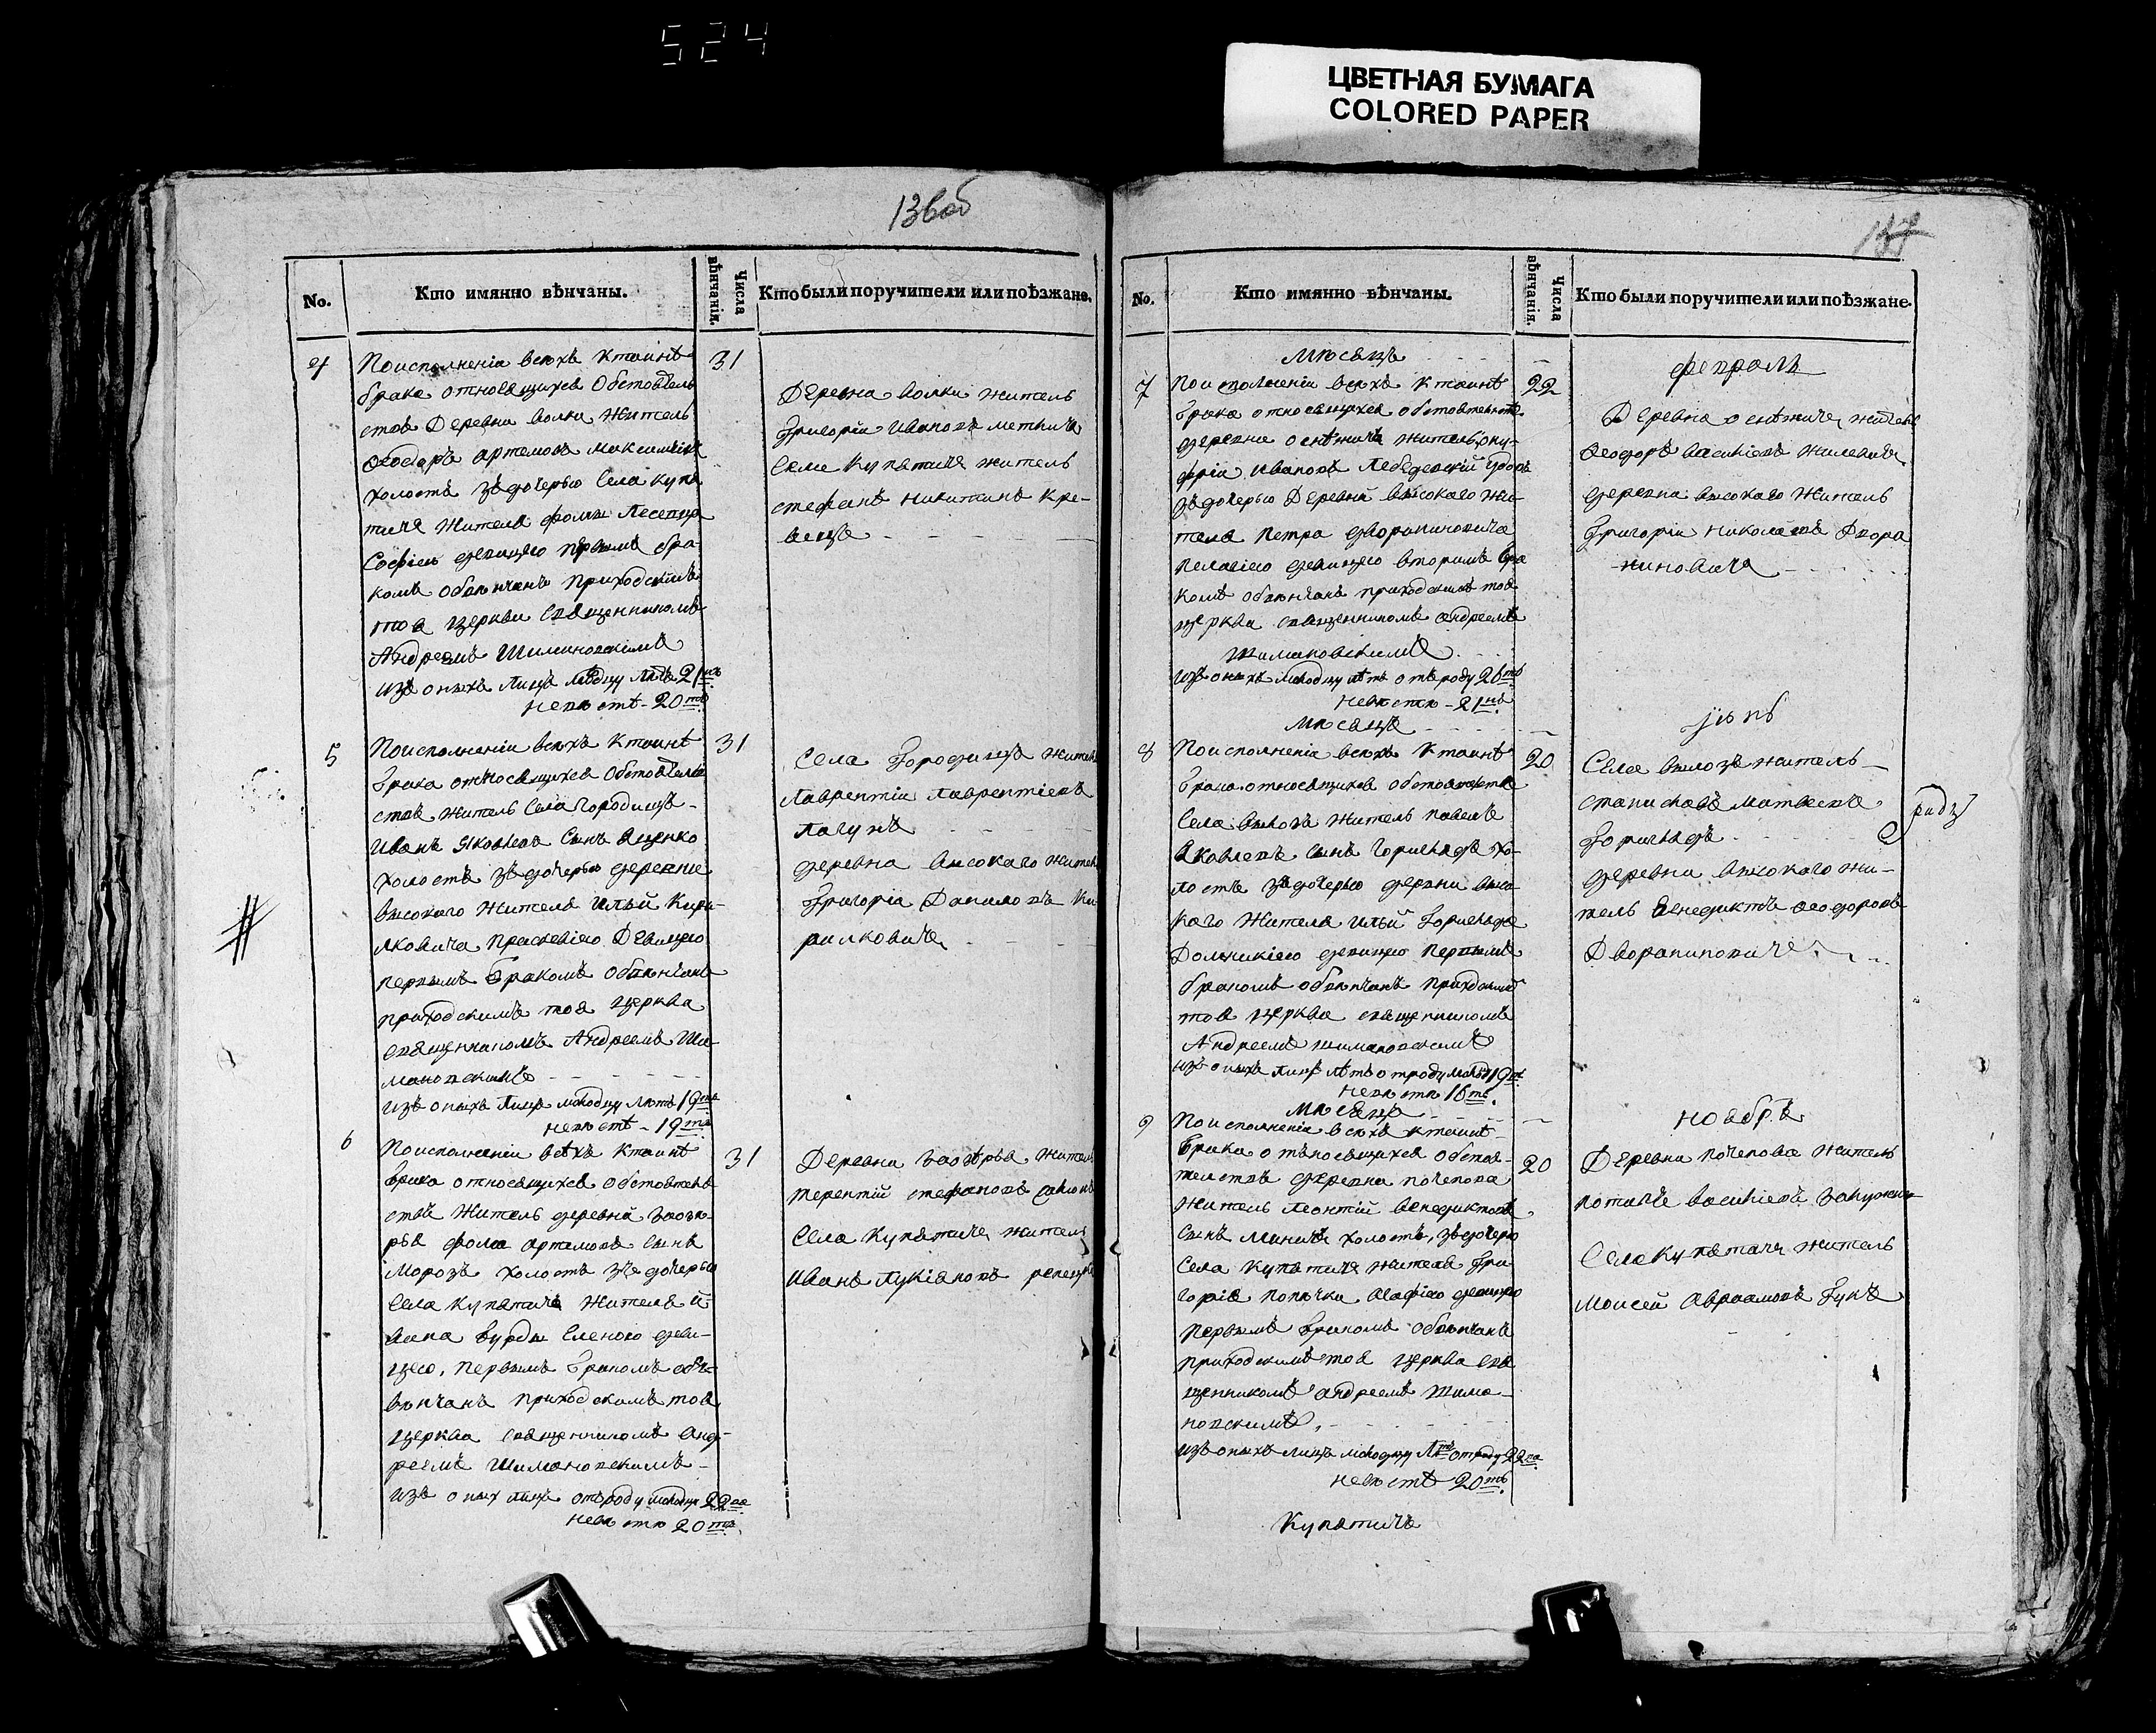 524
ЦВЕТНАЯ БУМАГА
COLORED PAPER
136об
137
No.
Кто имянно вѣнчаны.
Числа вѣнчанія.
Кто были поручители или поѣзжане.
4
Поисполненіи всѣхъ Ктаинѣ
брака относящихся Обстоятель
ствъ Деревни волки Житель
Ѳеодоръ артемовъ
холостъ зъдочерью Села купя
тичъ Жителя фомы
Софіею девицею первымъ бра
комъ обвѣнчанъ Приходскимъ
тоя церкви священникомъ
Андреемъ Шимановскимъ
изъ оныхъ лицъ молодцу лѣтъ 21
невѣстѣ - 20
31
Деревни волки житель
Григорій Ивановъ
Села Купятичъ житель
стефанъ никитинъ кре-
вецъ
5
Поисполненіи всѣхъ Ктаинѣ
брака относящихся Обстоятель
ствъ житель Села Городищъ
Иванъ Яковлевъ Сынъ Яценко
холостъ зъдочерью деревни
высокаго Жителя Ильи Кири-
лковича Праскевіею Девицею
первымъ бракомъ Обвѣнчанъ
приходскимъ тоя церкви
священникомъ Андреемъ Ши-
мановскимъ
изъ оныхъ лицъ молодцу лѣтъ 19
невѣстѣ - 19
31
Села Городища жител
Лаврентій Лаврентіевъ
Лагунъ
деревни высокаго жител
Григорій Даниловъ Ки
рилковичъ
6
Поисполненіи всѣхъ Ктаинѣ
брака относящихся Обстоятель
ствъ Житель деревни Заозе-
рья фома артемовъ Сынъ
Морозъ холостъ зъ дочерью
Села купятичъ Жителя И-
вана бурды Еленою деви-
цею, первымъ бракомъ объ-
вѣнчанъ приходскимъ тоя
церкви священникомъ Анд-
реемъ Шимановскимъ
изъ оных лицъ отъроду молодцу 22
невѣстѣ 20
31
Деревни заозерья житель
терентій стефановъ
Села Купятичъ житель
Иванъ Лукіановъ
No.
Кто имянно вѣнчаны.
Числа вѣнчанія.
Кто были поручители или поѣзжане.
Мѣсяцъ
февраль
7
Поисполненіи всѣхъ Ктаинѣ
брака относящихся обстоятельств
деревни оснѣжичъ житель ону-
фрій Ивановъ Лебедевскій удовъ
зъдочерью Деревни высокаго жи-
теля Петра дворапиновича
Пелагіею девицею вторымъ бра
комъ обвѣнчанъ приходскимъ тоя
церкви священникомъ Андреемъ
Шимановскимъ
изъ оныхъ молодцу лѣтъ отъроду 26
невѣстѣ - 21
22
Деревни оснѣжичъ житель
Ѳеодоръ василіевъ Жилевичъ
деревни высокаго житель
Григорій Николаевъ Двора
пиновичъ
Мѣсяцъ
іюнь
8
Поисполненіи всѣхъ Ктаинѣ
брака относящихся обстоятельствъ
Села вылозъ житель павелъ
Яковлевъ сынъ Горегладъ хо-
лостъ зъдочерью деревни высо-
каго Жителя Ильи
девицею первымъ
бракомъ обвѣнчанъ приходскимъ
тоя церкви священникомъ
Андреемъ Шимановскимъ
изъ оныхъ лицъ лѣтъ отроду молодцу 19
невѣстѣ 18
20
Села вылозъ житель
станиславъ матвеевъ
деревни высокаго жи-
тель Венедиктъ Ѳеодоровъ
Дворапиновичъ
Мѣсяцъ
ноябрь
9
Поисполненіи всѣхъ Ктаинѣ
брака относящихся обстоя-
тельствъ деревни почепова
житель Леонтій Венедиктовъ
сынъ Миничъ холостъ, зъдочерью
Села Купятичъ жителя Гри-
горія Агафіею девицею
первымъ бракомъ обвѣнчанъ
приходскимъ тоя церкви свя
щенникомъ Андреемъ Шима-
новскимъ,
изъ оныхъ лицъ молодцу лѣтъ отроду 22
невѣстѣ 20
20
Деревни почепова житель
василіевъ
Села Купятичъ житель
Моисей Авраамовъ Гукъ
Купятичъ